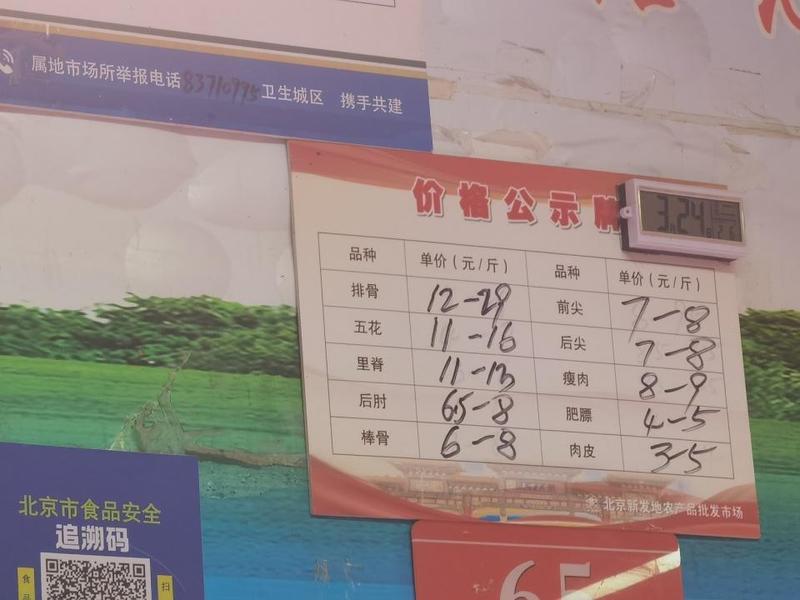 属地市场所举报电话83710975卫生城区 携手共建
价格公示牌
3.24
品种 单价(元/斤) 品种 单价(元/斤)
排骨 12-29 前尖 7-8
五花 11-16 后尖 7-8
里脊 11-13 瘦肉 8-9
后肘 6.5-8 肥膘 4-5
棒骨 6-8 肉皮 3-5
北京新发地农产品批发市场
北京市食品安全
追溯码
食品
扫
65